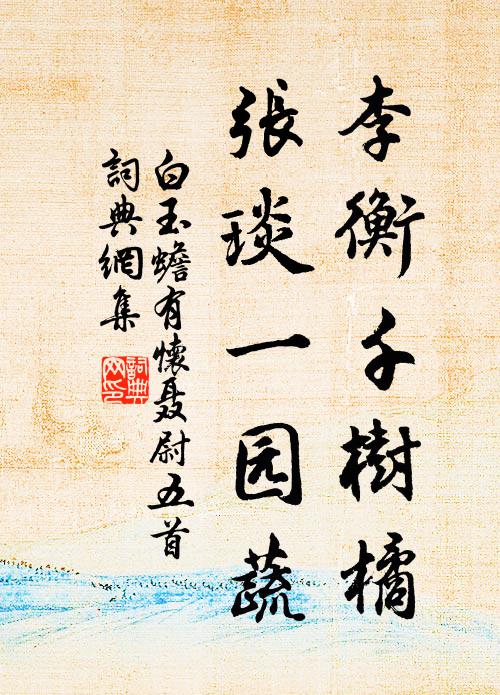 李衡千樹橘
張琰一园蔬
白玉蟾有懷聂尉五首
詞典網集
詞典網印